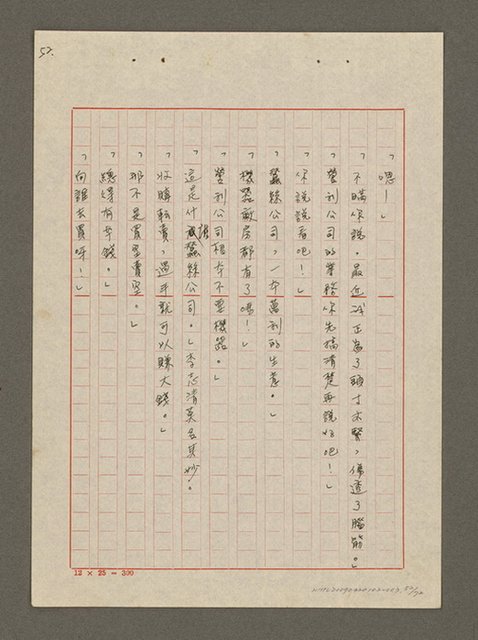 57.
「嗯！」
「不瞞你說。最近我正為了頭寸太緊，傷透了腦筋。」
「營利公司的業務你先搞清楚再說好吧！」
「你說說看吧！」
「蠶絲公司，一本萬利的生意。」
「機器廠房都有了嗎！」
「營利公司根本不要機器。」
「這是什蠶絲公司。」李志清莫名其妙。
「收購轉賣，過手就可以賺大錢。」
「那不是買空賣空。」
「總得有本錢。」
「向誰去買呀！」
12 × 25 = 300